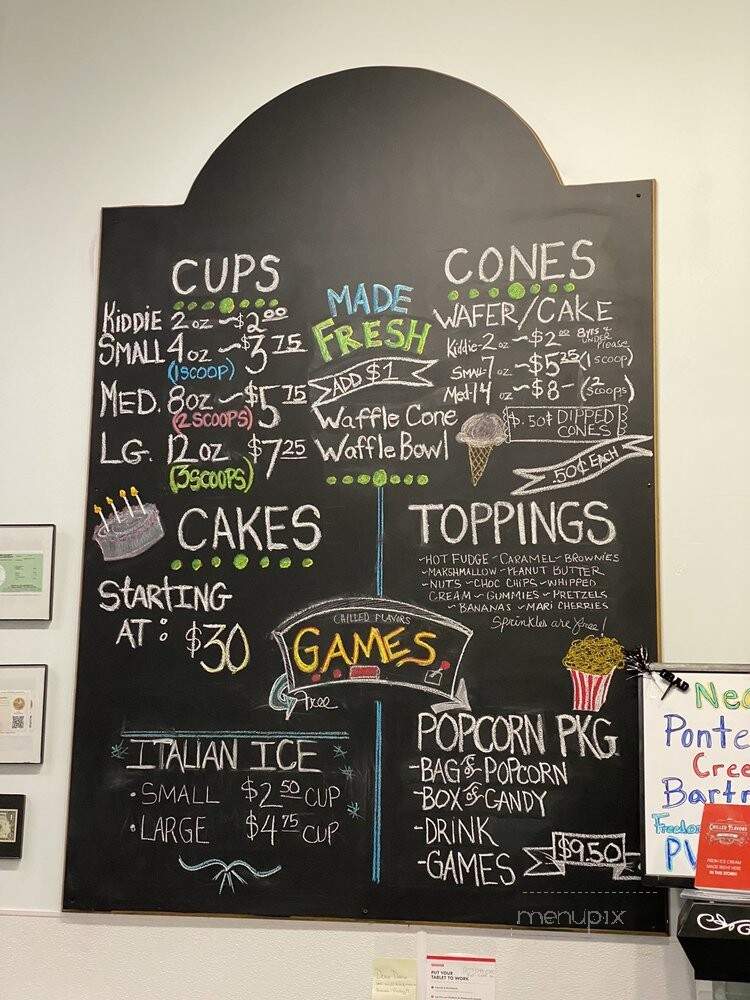 CUPS
KIDDIE 2 oz ~ $2.00
SMALL 4 oz ~ $3.75
(1 SCOOP)
MED. 8oz ~ $5.75
(2 SCOOPS)
LG. 12 oz $7.25
(3 SCOOPS)
MADE
FRESH
ADD $1
Waffle Cone
Waffle Bowl
CONES
WAFER/CAKE
Kiddie-2 oz ~ $2.00 8yrs & UNDER Please
Small-7 oz ~ $5.25 (1 scoop)
Med-14 oz ~ $8- (2 scoops)
$.50¢ DIPPED
CONES
.50¢ EACH
CAKES
STARTING
AT: $30
TOPPINGS
~HOT FUDGE ~CARAMEL~BROWNIES
~MARSHMALLOW ~PEANUT BUTTER
~NUTS ~CHOC CHIPS ~WHIPPED
CREAM ~GUMMIES ~PRETZELS
~BANANAS ~MARI CHERRIES
Sprinkles are free!
CHILLED FLAVORS
GAMES
Free
ITALIAN ICE
•SMALL $2.50 CUP
•LARGE $4.75 CUP
POPCORN PKG
-BAG of POPCORN
-BOX of CANDY
-DRINK
-GAMES
$9.50
Ponte
Cree
Bartr
Freedo
PV
CHILLED FLAVORS
FRESH ICE CREAM
MADE RIGHT HERE
IN THIS STORE!
menupix
PUT YOUR
TABLET TO WORK